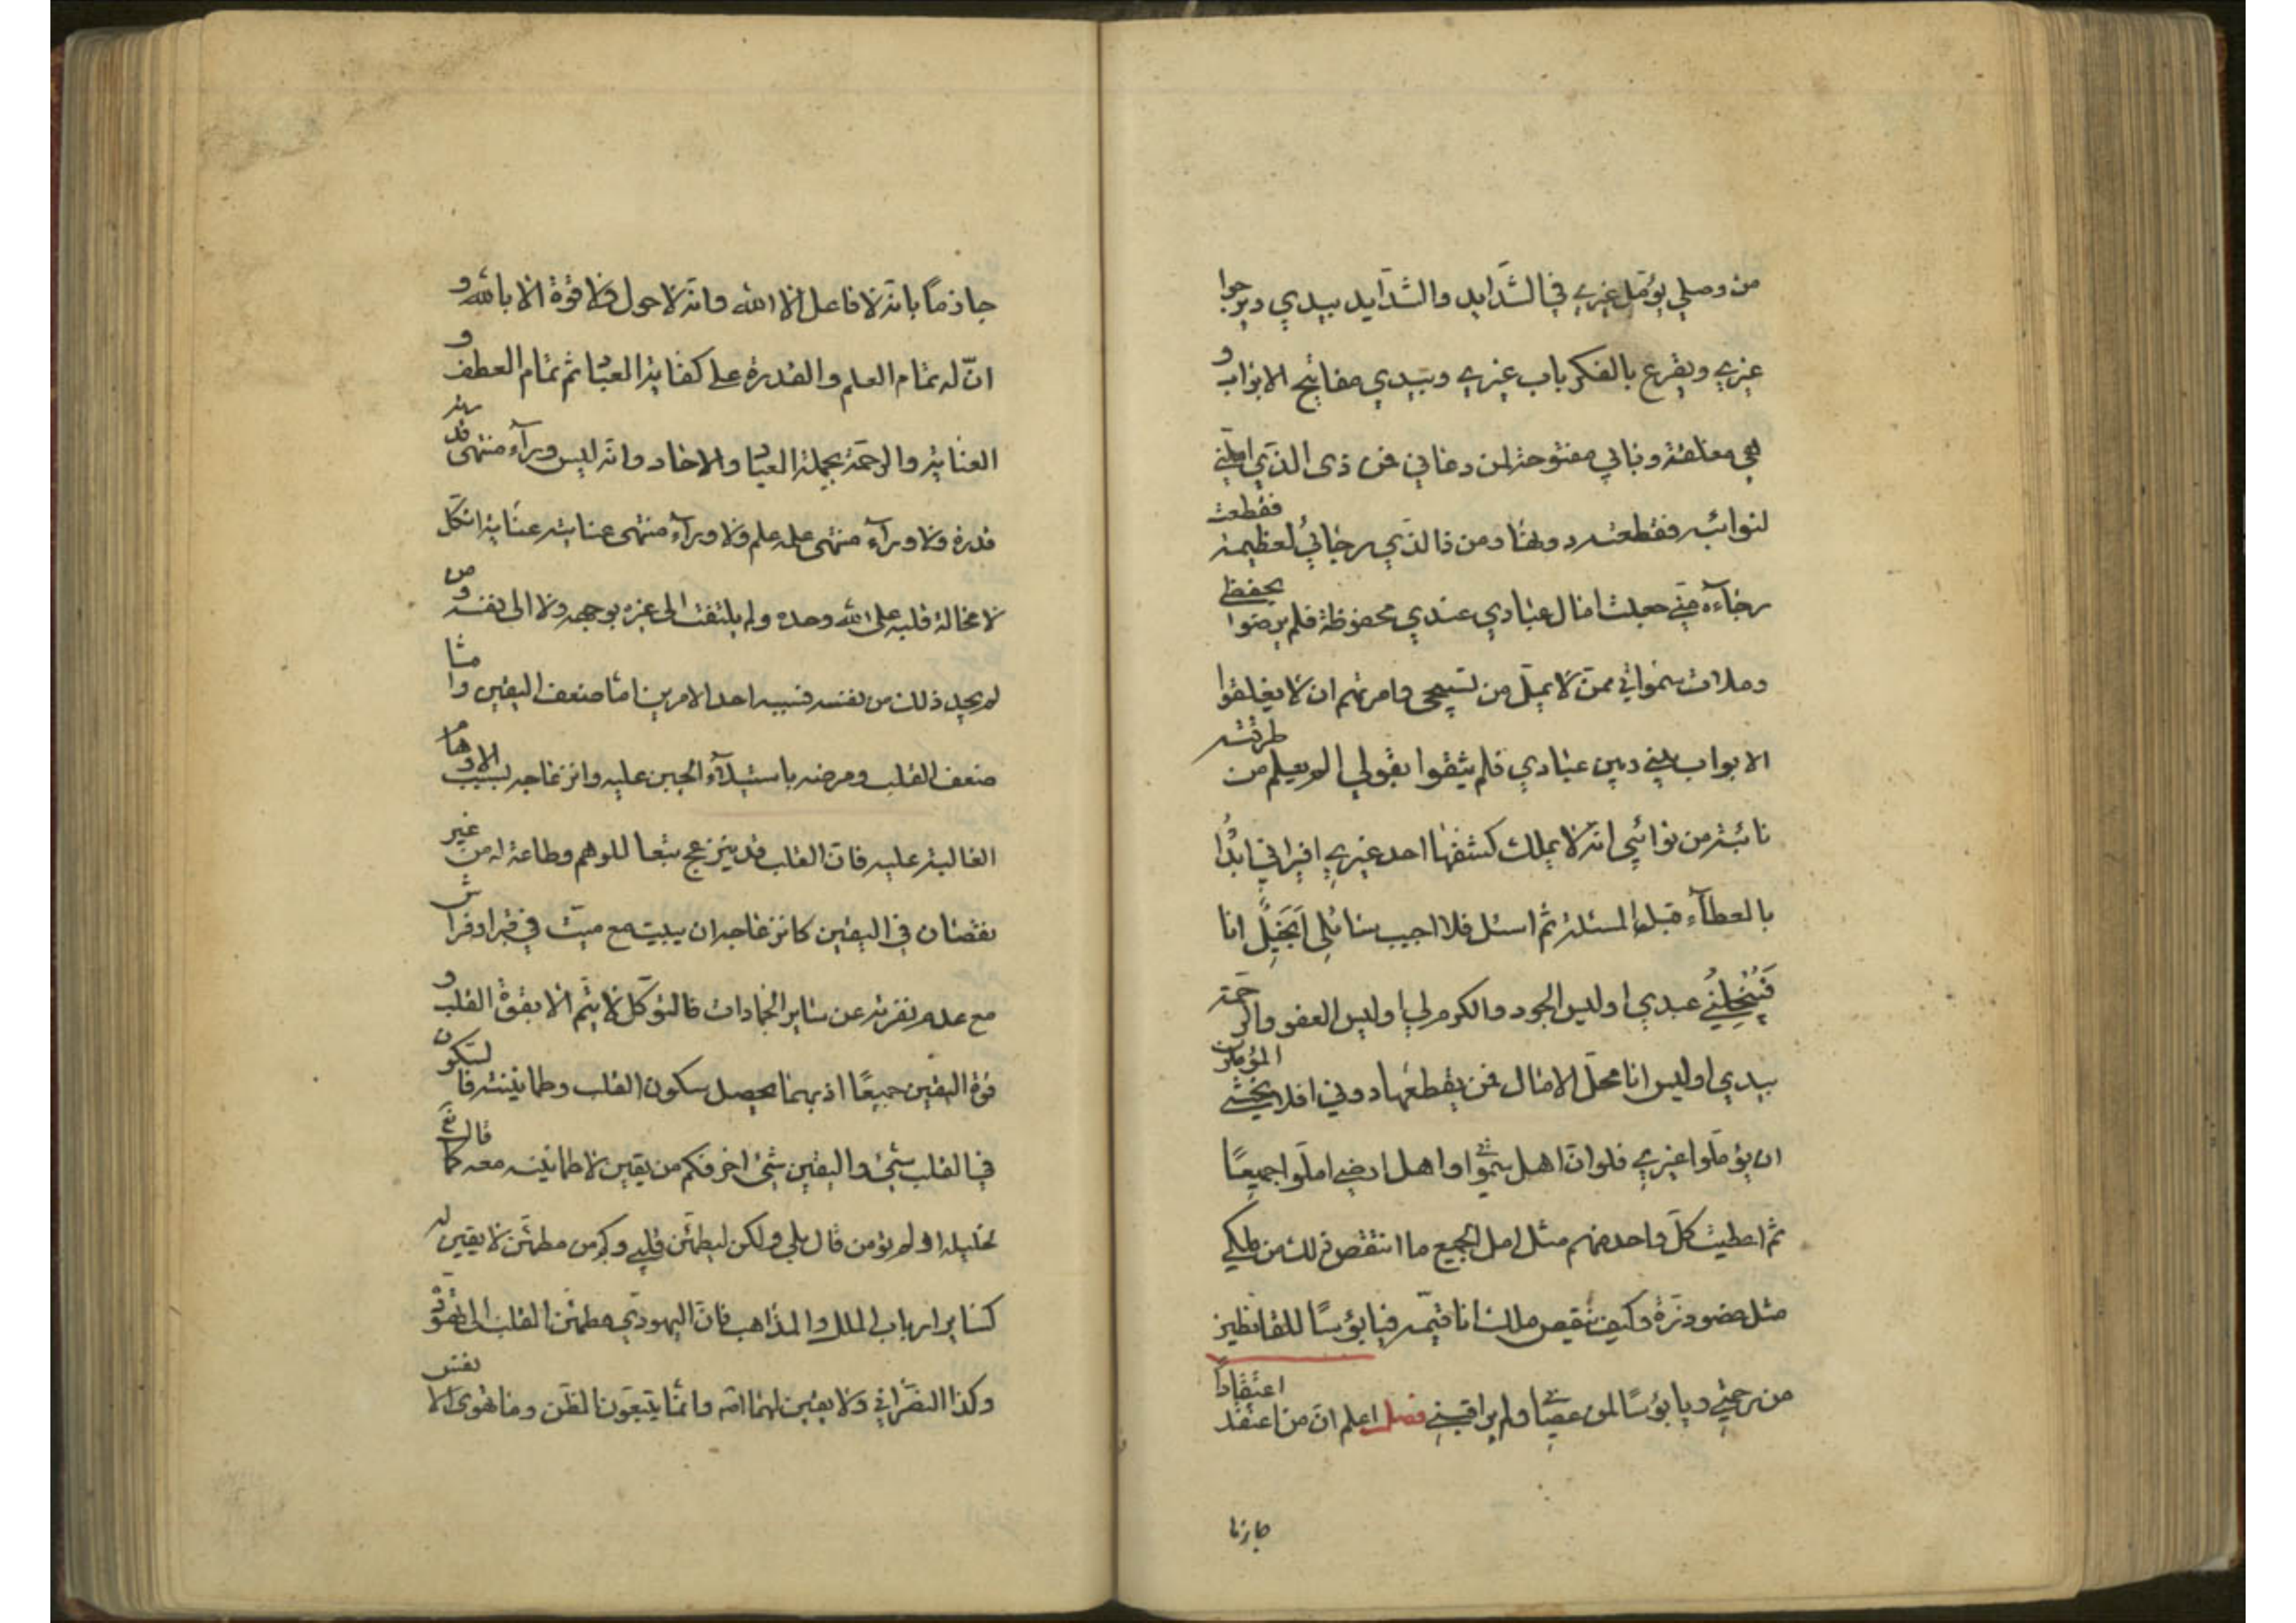 من وصلي يؤمل غيري في الشدايد والشدآيد بيدي ويرجوا
غيري ويقرع بالفكر باب غيري وبيدي مفاتيح الابواب و
هي مغلقة وبابي مفتوحة لمن دعاني فمن ذى الذي املني
لنوائبه فقطعته دونها ومن ذا لذي رجاني لعظيمة فقطعت
رجاءه مني جعلت امال عبادي عندي محفوظة فلم يرضوا بحفظي
وملات سمواتي ممن لا يمل من تسبيحى وامرتهم ان لا يغلقوا
الابواب بيني وبين عبادي فلم يثقوا بقولي الم يعلم من طرقته
نائبة من نوائبي انه لا يملك كشفها احد غيري افيراني ابدا
بالعطآء قبل المسئلة ثم اسئل فلا اجيب سائلي ابخيل انا
فيبخلني عبدي اوليس الجود والكرم لي اوليس العفو والرحمة
بيدي اوليس انا محل الامال فمن يقطعها دوني افلا يخشي المؤملون
ان يؤملوا غيري فلو ان اهل سمواتي واهل ارضي املوا جميعا
ثم اعطيت كل واحد منهم مثل امل الجميع ما انتقص ذلك من ملكي
مثل عضو ذرة وكيف ينقص ملك انا قيمه فيا بؤسا للقانطين
من رحمتي ويا بؤسا لمن عصاني ولم يراقبني فصل اعلم ان من اعتقد اعتقاداً
جازما
جازماً بانه لا فاعل الا الله وانه لا حول ولا قوة الا بالله و
ان له تمام العلم والقدرة على كفاية العباد ثم تمام العطف و
العناية والرحمة بجملة العباد والاحاد وانه ليس ورآء منتهى قدرته
قدرة ولا ورآء منتهى علمه علم ولا ورآء منتهى عنايته عناية اتكل
لا محالة قلبه على الله وحده ولم يلتفت الى غيره بوجه ولا الى نفسه ومن
لم يجد ذلك من نفسه فسببه احد الامرين اما ضعف اليقين واما
ضعف القلب ومرضه باستيلآء الجبن عليه وانزعاجه بسبب الاوهام
الغالبة عليه فان القلب قد ينزعج تبعا للوهم وطاعة له من غير
نقصان في اليقين كانزعاجه ان يبيت مع ميت في قبر او فراش
مع عدم نفرته عن سائر الجمادات فالتوكل لا يتم الا بقوة القلب و
قوة اليقين جميعًا اذ بهما يحصل سكون القلب وطمانينته فالسكون
في القلب شيئ واليقين شيئ اخر فكم من يقين لا طمانينة معه كما قال تع
لخليله اولم تؤمن قال بلى ولكن ليطمئن قلبي وكم من مطمئن لا يقين له
كسائر ارباب الملل والمذاهب فان اليهودي مطمئن القلب الى تهوده
وكذا النصراني ولا يقين لهما انه وانما يتبعون الظن وما تهوى الانفس